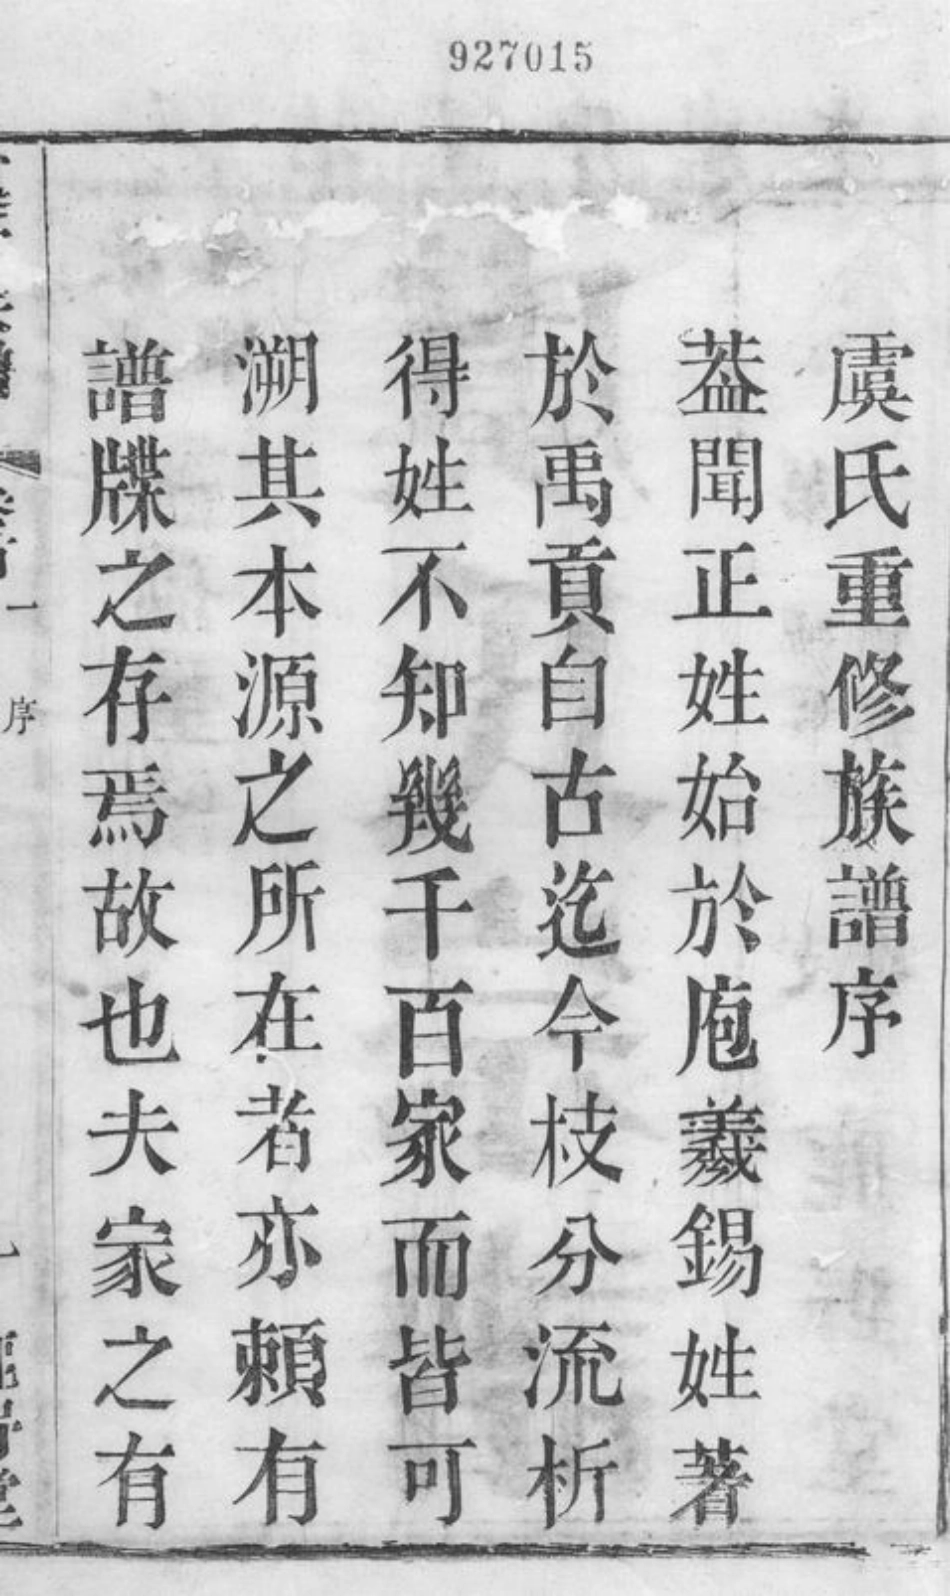 927015
虞氏重修族譜序
葢聞正姓始於庖羲錫姓著
於禹貢自古迄今枝分流析
得姓不知幾千百家而皆可
溯其本源之所在者亦頼有
譜牒之存焉故也夫家之有
一
序